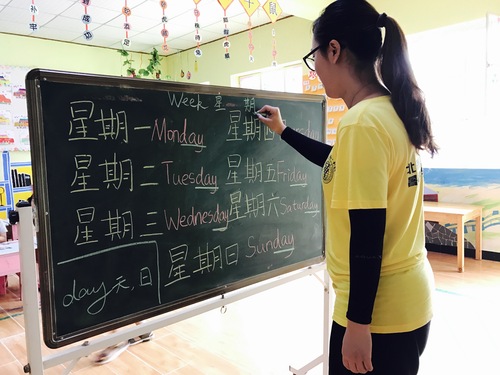 Week 星 期
星期一 Monday
星期二 Tuesday
星期三 Wednesday
day 天,日
星期四
星期五 Friday
星期六 Saturday
星期日 Sunday
北